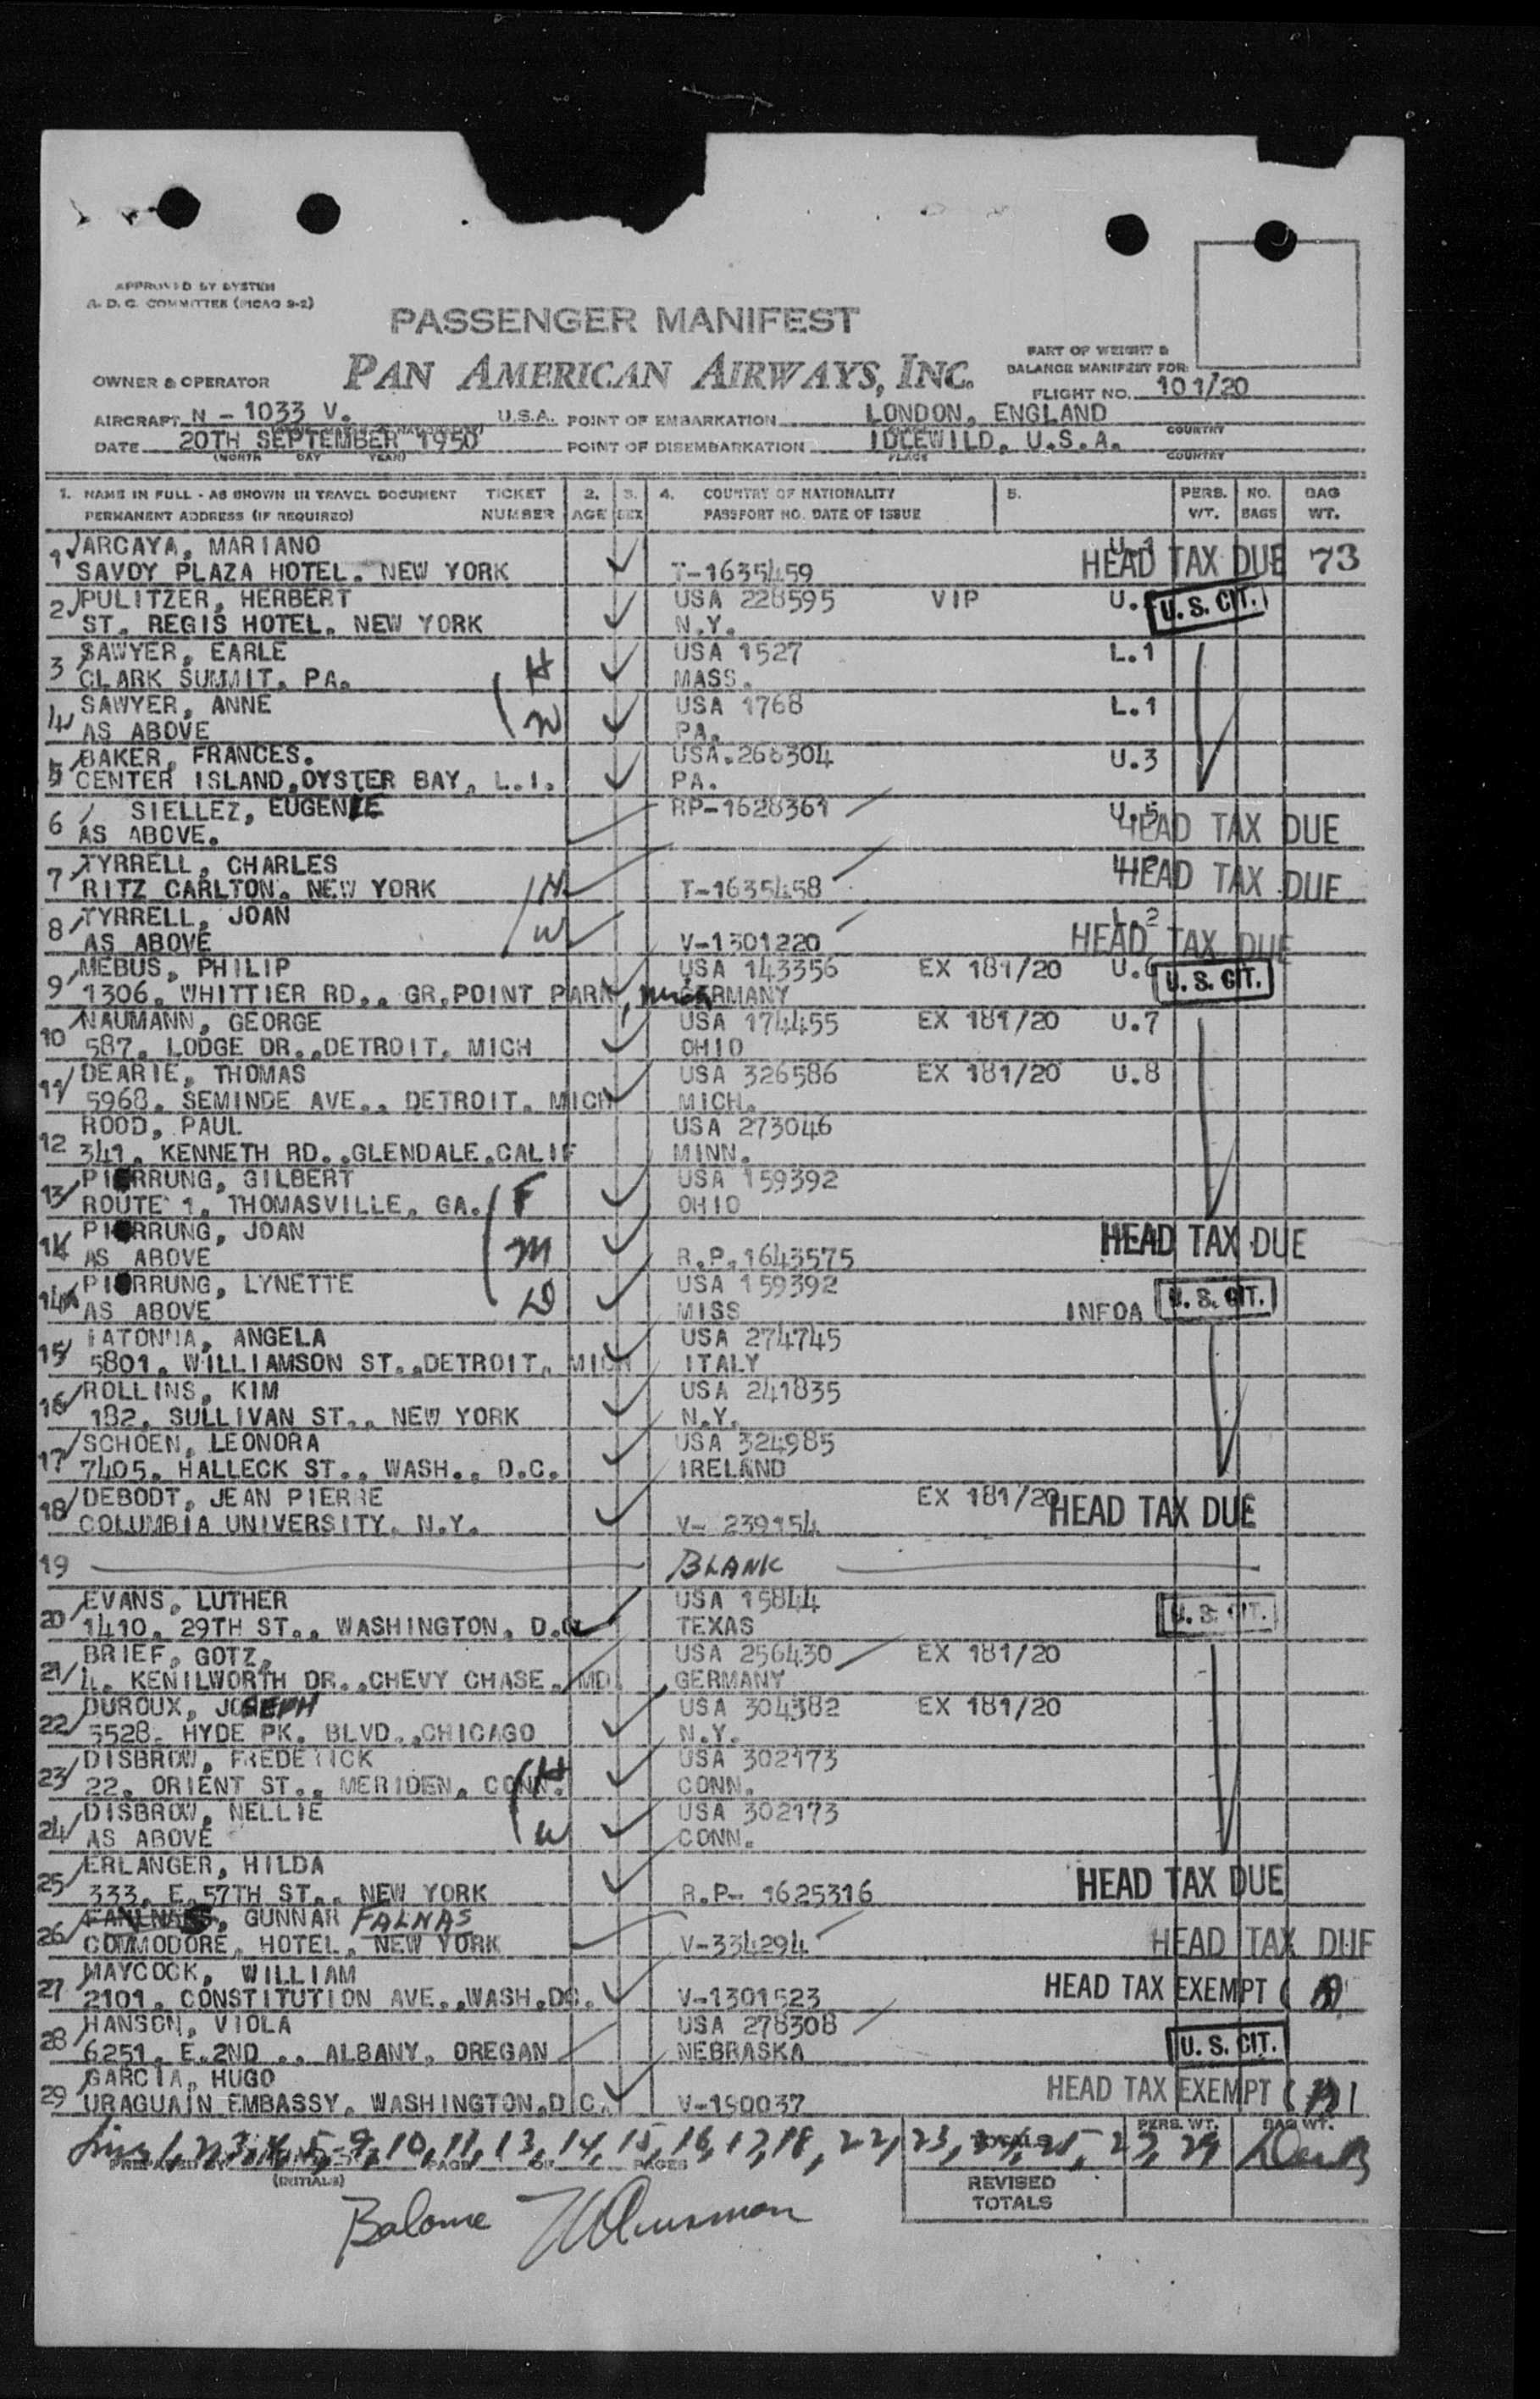 APPROVED BY SYSTEM
A. D. C. COMMITTEE (PICAO 9-2)
PASSENGER MANIFEST
PAN AMERICAN AIRWAYS, INC.
PART OF WEIGHT &
BALANCE MANIFEST FOR:
OWNER & OPERATOR
FLIGHT NO. 101/20
AIRCRAFT N - 1033 V. U.S.A. POINT OF EMBARKATION LONDON, ENGLAND
COUNTRY
DATE 20TH SEPTEMBER 1950 POINT OF DISEMBARKATION IDLEWILD, U.S.A.
(MONTH DAY YEAR) PLACE COUNTRY
1. NAME IN FULL - AS SHOWN IN TRAVEL DOCUMENT TICKET 2. 3. 4. COUNTRY OF NATIONALITY 5. PERS. NO. BAG
PERMANENT ADDRESS (IF REQUIRED) NUMBER AGE SEX PASSPORT NO. DATE OF ISSUE WT. BAGS WT.
1 ARCAYA, MARIANO U.1
SAVOY PLAZA HOTEL. NEW YORK T-1635459 HEAD TAX DUE 73
2 PULITZER, HERBERT USA 228595 VIP U. U. S. CIT.
ST. REGIS HOTEL. NEW YORK N.Y.
3 SAWYER, EARLE USA 1527 L.1
CLARK SUMMIT. PA. H MASS.
4 SAWYER, ANNE USA 1768 L.1
AS ABOVE W PA.
5 BAKER, FRANCES. USA.266304 U.3
CENTER ISLAND,OYSTER BAY, L.I. PA.
6 SIELLEZ, EUGENIE RP-1628361 U.5
AS ABOVE. HEAD TAX DUE
7 TYRRELL, CHARLES
RITZ CARLTON. NEW YORK H T-1635458 HEAD TAX DUE
8 TYRRELL, JOAN L.2
AS ABOVE W V-1301220 HEAD TAX DUE
9 MEBUS, PHILIP USA 143356 EX 181/20 U.6 U. S. CIT.
1306. WHITTIER RD., GR,POINT PARK, Mich GERMANY
10 NAUMANN, GEORGE USA 174455 EX 181/20 U.7
587. LODGE DR.,DETROIT. MICH OHIO
11 DEARIE, THOMAS USA 326586 EX 181/20 U.8
5968. SEMINDE AVE., DETROIT. MICH MICH.
12 ROOD, PAUL USA 273046
341. KENNETH RD.,GLENDALE,CALIF MINN.
13 PIERRUNG, GILBERT USA 159392
ROUTE 1. THOMASVILLE, GA. F OHIO
14 PIERRUNG, JOAN HEAD TAX DUE
AS ABOVE M R.P.1643575
14A PIERRUNG, LYNETTE USA 159392
AS ABOVE D MISS INFOA U. S. CIT.
15 LATONNA, ANGELA USA 274745
5801. WILLIAMSON ST.,DETROIT. MICH ITALY
16 ROLLINS, KIM USA 241835
182. SULLIVAN ST., NEW YORK N.Y.
17 SCHOEN, LEONORA USA 324985
7405. HALLECK ST., WASH., D.C. IRELAND
18 DEBODT, JEAN PIERRE EX 181/20 HEAD TAX DUE
COLUMBIA UNIVERSITY. N.Y. V- 239154
19 BLANK
20 EVANS, LUTHER USA 15844 U. S. CIT.
1410. 29TH ST., WASHINGTON, D.C. TEXAS
21 BRIEF, GOTZ, USA 256430 EX 181/20
4. KENILWORTH DR.,CHEVY CHASE. MD. GERMANY
22 DUROUX, JOSEPH USA 304382 EX 181/20
5528. HYDE PK. BLVD.,CHICAGO N.Y.
23 DISBROW, FREDERICK USA 302173
22. ORIENT ST., MERIDEN, CONN. H CONN.
24 DISBROW, NELLIE USA 302173
AS ABOVE W CONN.
25 ERLANGER, HILDA HEAD TAX DUE
333. E.57TH ST., NEW YORK R.P- 1625316
26 GUNNAR FALNAS
COMMODORE, HOTEL. NEW YORK V-334294 HEAD TAX DUE
27 MAYCOCK, WILLIAM HEAD TAX EXEMPT (A)
2101. CONSTITUTION AVE.,WASH.DC. V-1301523
28 HANSON, VIOLA USA 278308
6251. E.2ND ., ALBANY, OREGAN NEBRASKA U. S. CIT.
29 GARCIA, HUGO HEAD TAX EXEMPT (A)
URAGUAIN EMBASSY. WASHINGTON.D.C. V-190037
PERS. WT. BAG WT.
Lines 1, 2, 3, 4, 5, 9, 10, 11, 13, 14, 15, 16, 17, 18, 22, 23, 24, 25, 27, 29
PREPARED BY PAGE OF PAGES
(INITIALS)
TOTALS
REVISED
TOTALS
Balance